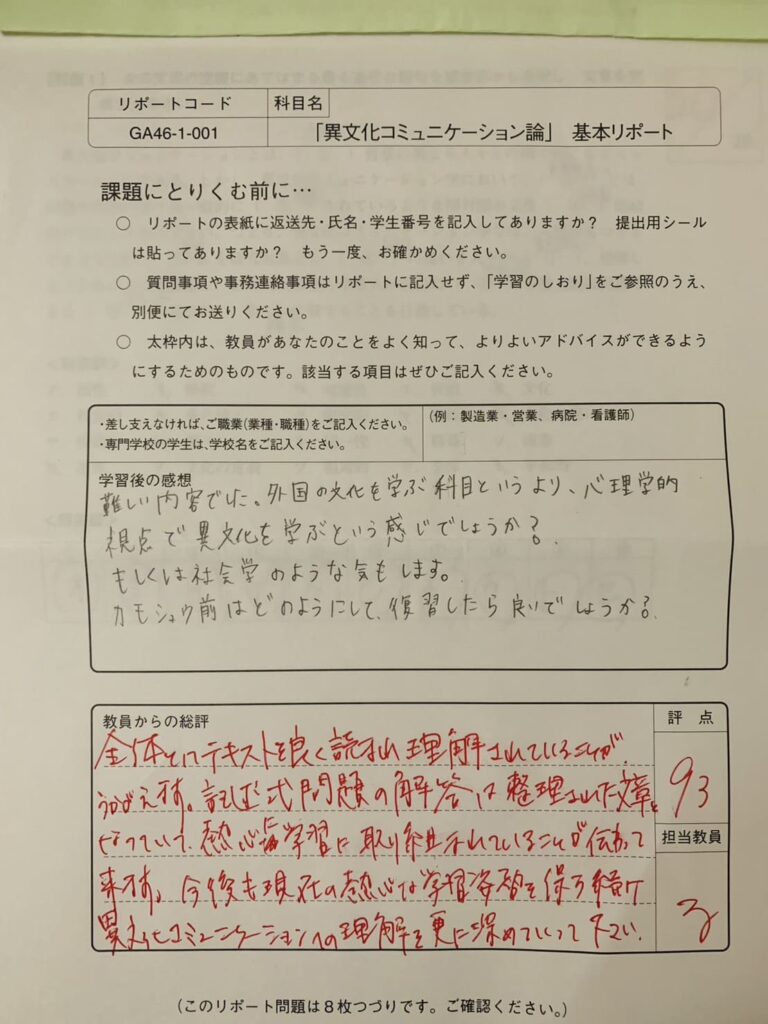 リポートコード 科目名
GA46-1-001 「異文化コミュニケーション論」 基本リポート
課題にとりくむ前に…
○ リポートの表紙に返送先・氏名・学生番号を記入してありますか? 提出用シール
は貼ってありますか? もう一度、お確かめください。
○ 質問事項や事務連絡事項はリポートに記入せず、「学習のしおり」をご参照のうえ、
別便にてお送りください。
○ 太枠内は、教員があなたのことをよく知って、よりよいアドバイスができるよう
にするためのものです。該当する項目はぜひご記入ください。
・差し支えなければ、ご職業(業種・職種)をご記入ください。
・専門学校の学生は、学校名をご記入ください。
(例:製造業・営業、病院・看護師)
学習後の感想
難しい内容でした。外国の文化を学ぶ科目というより、心理学的
視点で異文化を学ぶという感じでしょうか?
もしくは社会学のような気もします。
カモシュウ前はどのようにして、復習したら良いでしょうか?
教員からの総評
全体としてテキストを良く読まれ理解されていることが
うかがえます。記述式問題の解答は整理された文章と
なっていて、熱心に学習に取り組まれていることが伝わって
来ます。今後も現在の熱心な学習姿勢を保ち続け
異文化コミュニケーションへの理解を更に深めていって下さい。
評点
93
担当教員
(このリポート問題は8枚つづりです。ご確認ください。)